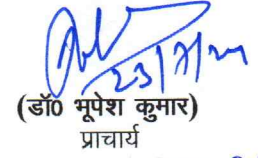 23/7/24
(डॉ0 भूपेश कुमार)
प्राचार्य